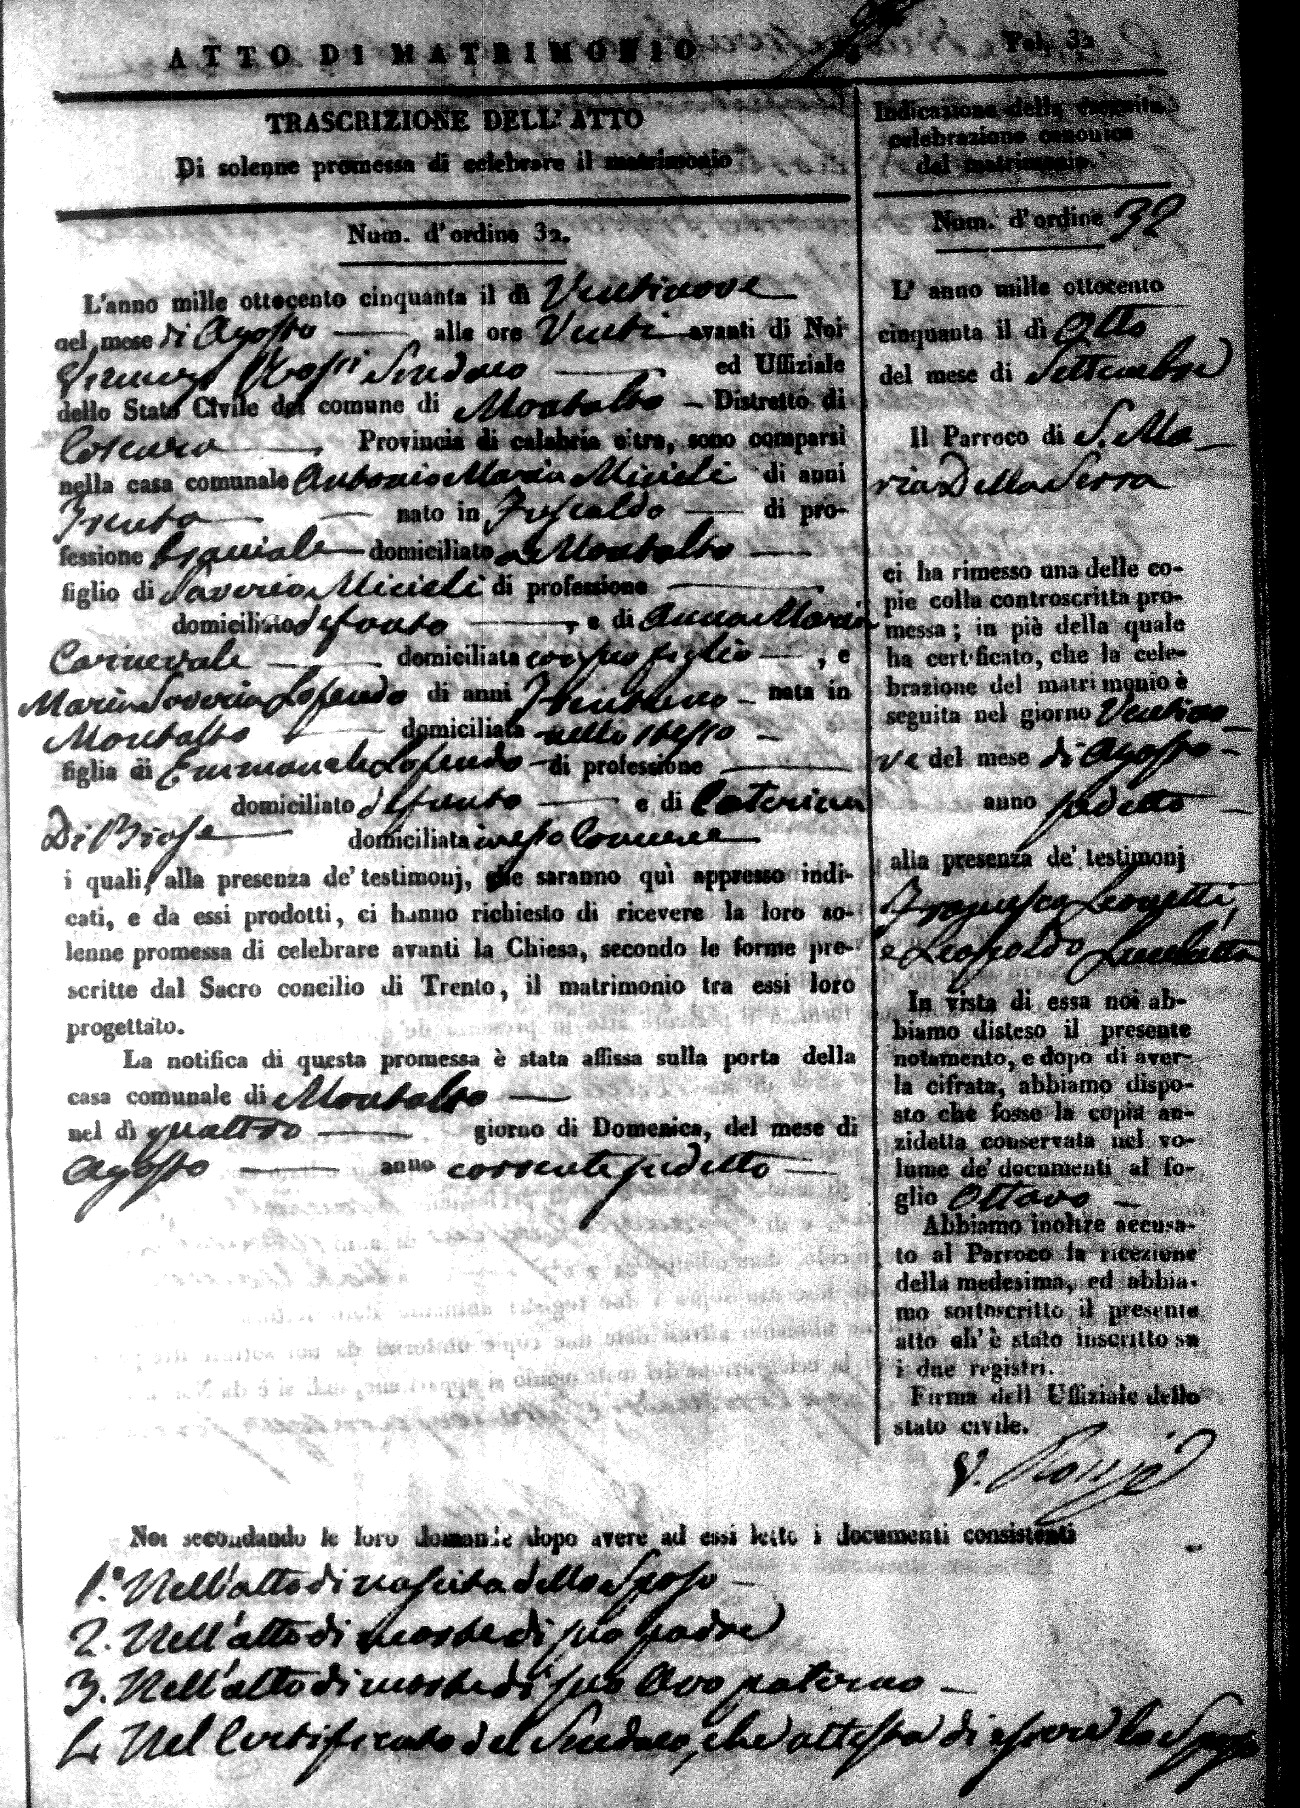 ATTO DI MATRIMONIO
Fol. 32
TRASCRIZIONE DELL' ATTO
Di solenne promessa di celebrare il matrimonio
Num. d'ordine 32.
L'anno mille ottocento cinquanta il dì Ventinove
nel mese di Agosto alle ore Venti avanti di Noi
Rossi Sindaco ed Uffiziale
dello Stato Civile del comune di Montalto Distretto di
Cosenza Provincia di calabria citra, sono comparsi
nella casa comunale Antonio Maria Micieli di anni
Trenta nato in Fuscaldo di pro-
fessione domiciliato a Montalto
figlio di Saverio Micieli di professione
domiciliato defonto, e di Anna Maria
Carnevale domiciliata con suo figlio, e
Maria Saveria Lofendo di anni nata in
Montalto domiciliata nello stesso
figlia di Emmanuele Lofendo di professione
domiciliato defonto e di Caterina
Di Biase domiciliata in esso Comune
i quali, alla presenza de' testimonj, che saranno quì appresso indi-
cati, e da essi prodotti, ci hanno richiesto di ricevere la loro so-
lenne promessa di celebrare avanti la Chiesa, secondo le forme pre-
scritte dal Sacro concilio di Trento, il matrimonio tra essi loro
progettato.
La notifica di questa promessa è stata affissa sulla porta della
casa comunale di Montalto
nel dì quattro giorno di Domenica, del mese di
Agosto anno corrente sudetto
Indicazione della seguita
celebrazione canonica
del matrimonio.
Num. d'ordine 32
L' anno mille ottocento
cinquanta il dì Otto
del mese di Settembre
Il Parroco di S. Ma
ria Della Serra
ci ha rimesso una delle co-
pie colla controscritta pro-
messa; in piè della quale
ha certificato, che la cele-
brazione del matrimonio è
seguita nel giorno Ventino
ve del mese di Agosto
anno sudetto
alla presenza de' testimonj
Francesco
e Leopoldo
In vista di essa noi ab-
biamo disteso il presente
notamento, e dopo di aver-
la cifrata, abbiamo dispo-
sto che fosse la copia an-
zidetta conservata nel vo-
lume de' documenti al fo-
glio Ottavo
Abbiamo inoltre accusa-
to al Parroco la ricezione
della medesima, ed abbia-
mo sottoscritto il presente
atto ch' è stato inscritto su
i due registri.
Firma dell Uffiziale dello
stato civile.
V. Rossi
Noi secondando le loro domande dopo avere ad essi letto i documenti consistenti
1.° Nell'atto di nascita dello Sposo
2. Nell'atto di morte di suo padre
3. Nell'atto di morte di suo Avo paterno
4. Nel Certificato del Sindaco, che attesta di essere lo Sposo